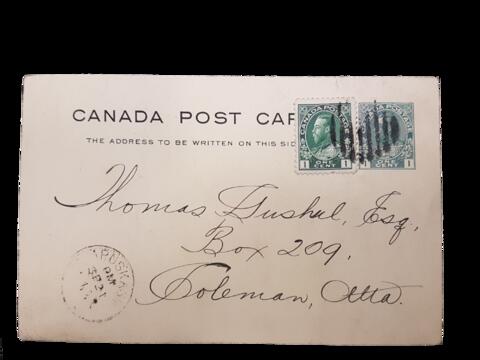 CANADA POST CAR
THE ADDRESS TO BE WRITTEN ON THIS SID
CANADA POSTAGE
1 ONE CENT 1
POSTAGE
ONE CENT 1
Thomas Gushul, Esq.
Box 209,
Coleman, Alta.
APUSKAS
PM
SP 21